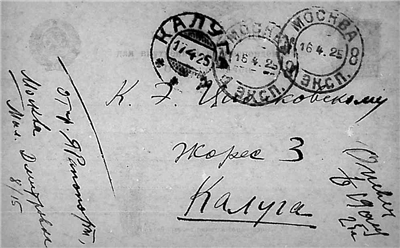 КАЛУГА
17 4 25
МОСКВА
16.4.25
ЭКСП.
МОСКВА
16.4.25
8
ЭКСП.
К. Э. Циолковскому
Жорес 3
Калуга
отпр. Я Рапопорт,
Москва
Мал. Дмитровка
8/15